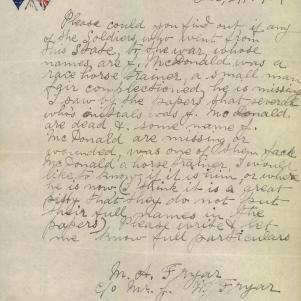 Please could you find out if any
of the Soldiers, who went from
this State, to the war, whose
names are J. McDonald was a
race horse trainer, a small man
fair complectioned, he is missing
I saw by the papers that several
who's initials was J. McDonald.
are dead & some name J.
McDonald are missing or
wounded, was one of them Jack
McDonald a horse trainer, I would
like to know if it is him, or where
he is now (I think it is a great
pitty that they do not put
their full names in the
papers), Please write & let
me know full particulars
M. A. Fryar
c/o Mr. J. Fryar